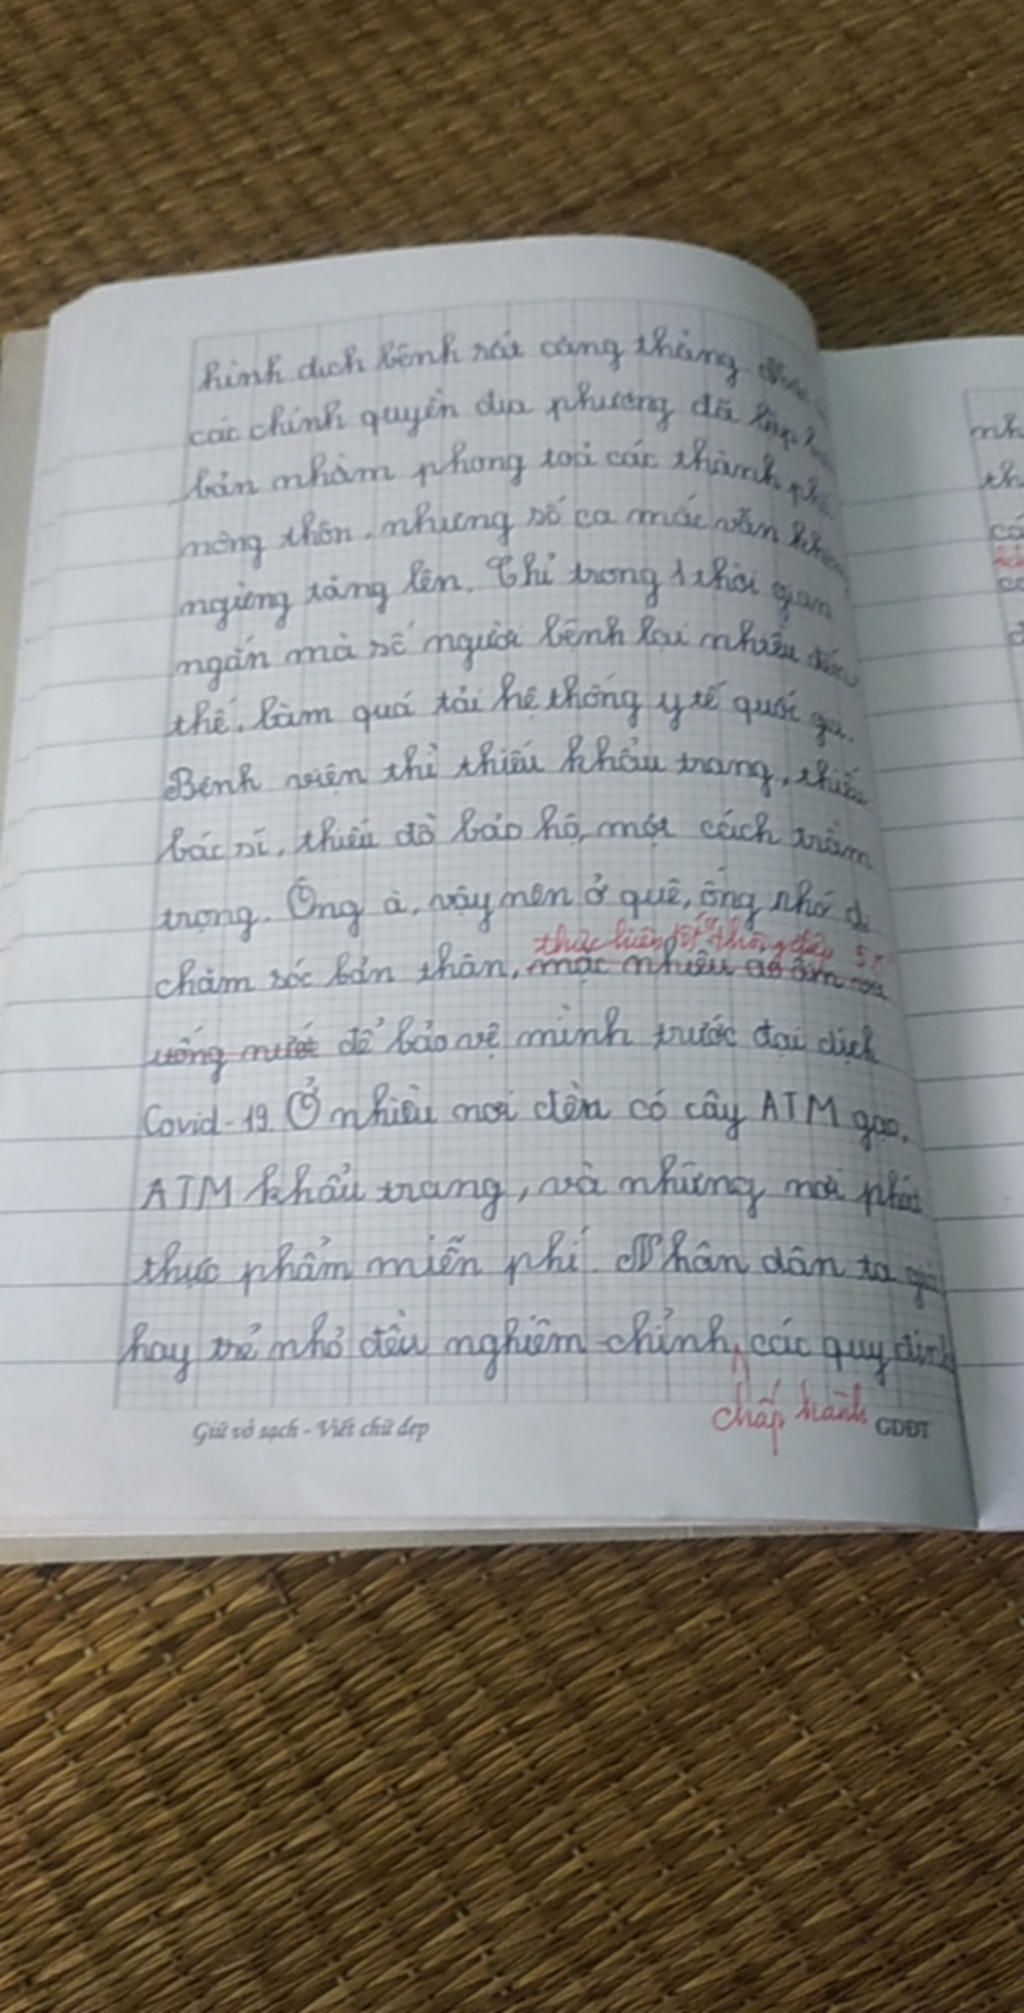 hình dịch bệnh rất căng thẳng
các chính quyền địa phương đã
bản nhằm phong toả các thành phố
nông thôn, nhưng số ca mắc vẫn không
ngừng tăng lên. Chỉ trong 1 thời gian
ngắn mà số người bệnh lại nhiều đến
thế. Làm quá tải hệ thống y tế quốc gia.
Bệnh viện thì thiếu khẩu trang, thiếu
bác sĩ, thiếu đồ bảo hộ, một cách trầm
trọng. Ông à, vậy nên ở quê, ông nhớ
thực hiện tốt "thông điệp 5
chăm sóc bản thân, mặc nhiều áo ấm
uống nước để bảo vệ mình trước đại dịch
Covid-19. Ở nhiều nơi đèn có cây ATM gạo,
ATM khẩu trang, và những nơi phát
thực phẩm miễn phí. Nhân dân ta già
hay trẻ nhỏ đều nghiêm chỉnh, các quy định
chấp hành
Giữ vở sạch - Viết chữ đẹp GDĐT
nh
th
cá